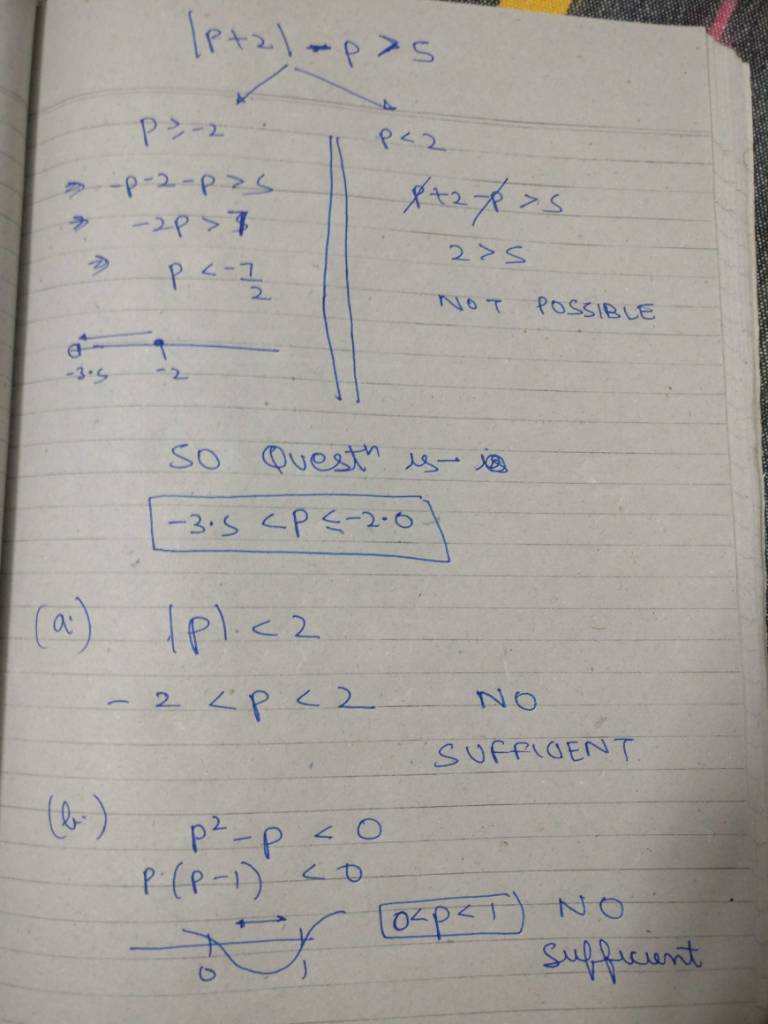 |p+2| - p > 5
p ≥ -2
p < 2
⇒ -p-2-p > 5
p+2-p > 5
⇒ -2p > 7
2 > 5
⇒ p < -7/2
NOT POSSIBLE
-3.5 -2
SO Questⁿ is
-3.5 < p ≤ -2.0
(a.) |p| < 2
-2 < p < 2 NO
SUFFICIENT
(b.) p² - p < 0
p.(p-1) < 0
0<p<1 NO
sufficient
0 1